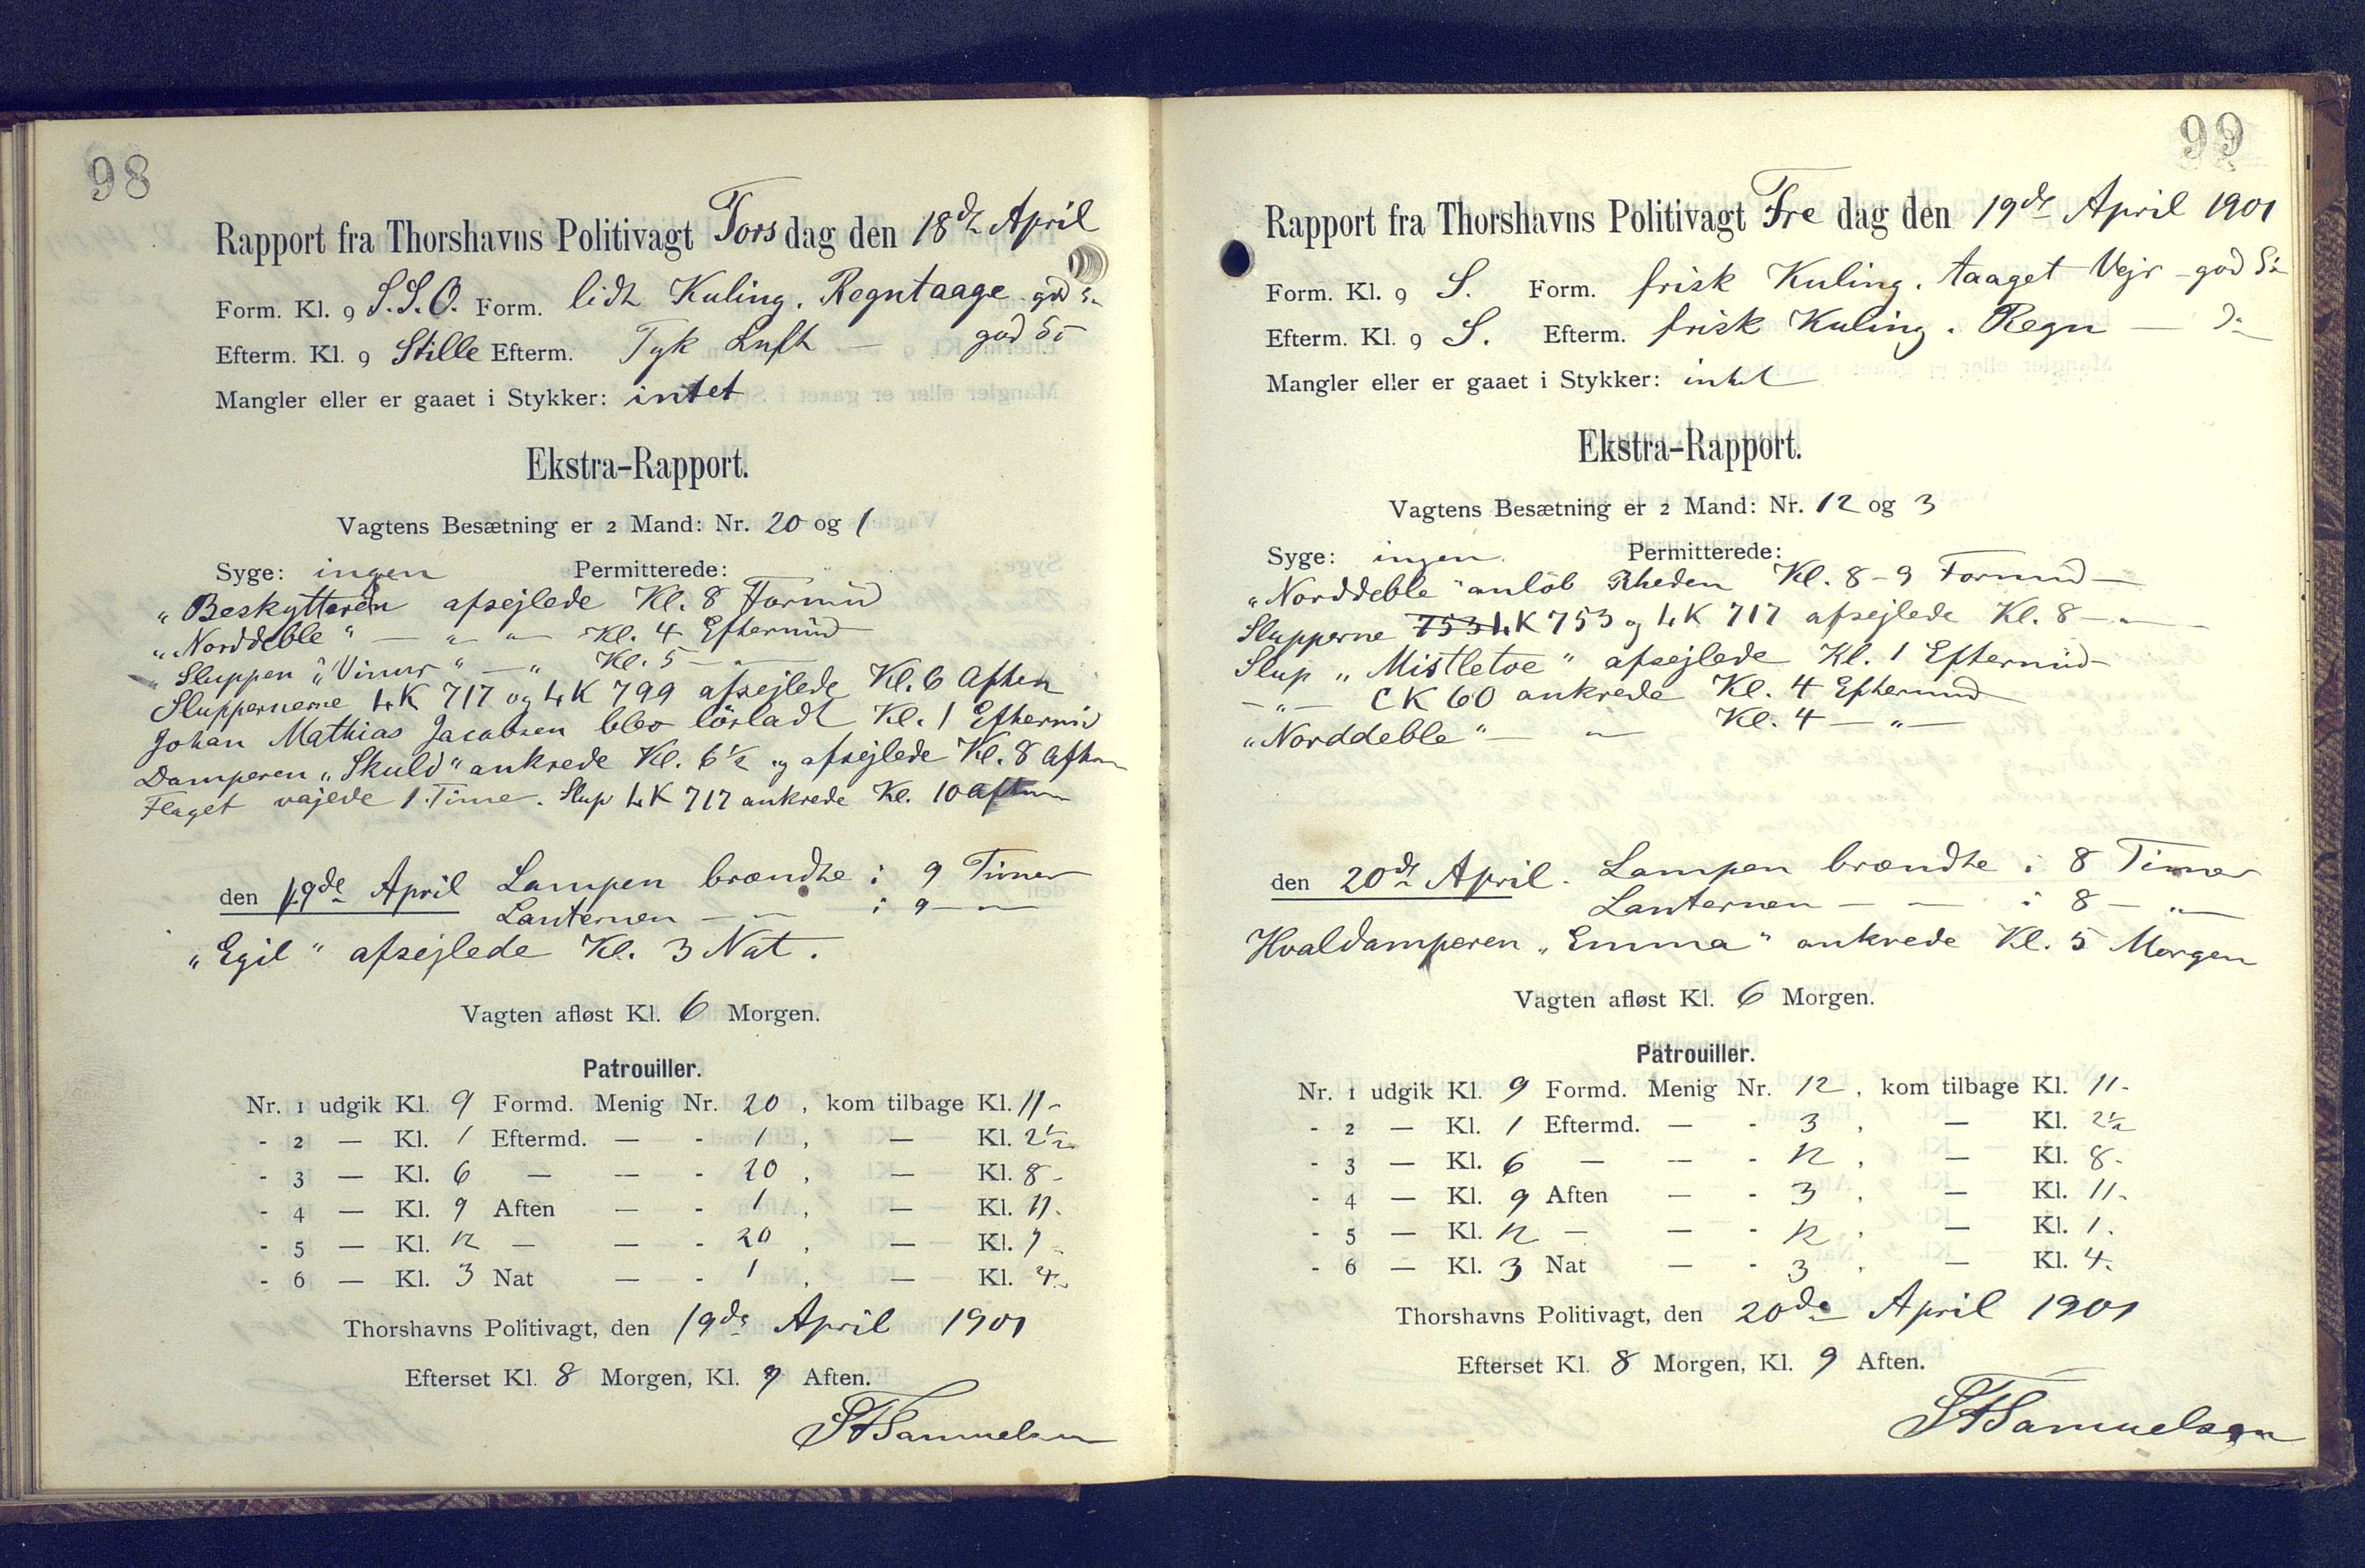 98
Rapport fra Thorshavns Politivagt Torsdag den 18de April
Form. Kl. 9 S.S.O. Form. lidt Kuling. Regntaage god Sö
Efterm. Kl. 9 Stille Efterm. Tyk Luft — god Sö
Mangler eller er gaaet i Stykker: intet
Ekstra-Rapport.
Vagtens Besætning er 2 Mand: Nr. 20 og 1
Syge: ingen Permitterede:
"Beskytteren afsejlede Kl. 8 Formid
"Norddeble" — " — Kl. 4 Eftermid
"Sluppen "Vimur" — " Kl. 5 — " —
Sluppernerne LK 717 og LK 799 afsejlede Kl. 6 Aften
Johan Mathias Jacobsen blev lösladt Kl. 1 Eftermid
Damperen "Skuld" ankrede Kl. 6½ og afsejlede Kl. 8 Aften
Flaget vajede 1 Time. Slup LK 717 ankrede Kl. 10 Aften
den 19de April Lampen brændte i 9 Timer
Lanternen — " — i 9 — " —
"Egil" afsejlede Kl. 3 Nat.
Vagten afløst Kl. 6 Morgen.
Patrouiller.
Nr. 1 udgik Kl. 9 Formd. Menig Nr. 20, kom tilbage Kl. 11 -
- 2 — Kl. 1 Eftermd. — - 1, — Kl. 2½
- 3 — Kl. 6 — — - 20, — Kl. 8 -
- 4 — Kl. 9 Aften — - 1, — Kl. 11.
- 5 — Kl. 12 — — - 20, — Kl. 1 -
- 6 — Kl. 3 Nat — - 1, — Kl. 4.
Thorshavns Politivagt, den 19de April 1901
Efterset Kl. 8 Morgen, Kl. 9 Aften.
Samuelsen
99
Rapport fra Thorshavns Politivagt Fredag den 19de April 1901
Form. Kl. 9 S. Form. frisk Kuling. taaget Vejr - god Sö
Efterm. Kl. 9 S. Efterm. frisk Kuling. Regn — do
Mangler eller er gaaet i Stykker: intet
Ekstra-Rapport.
Vagtens Besætning er 2 Mand: Nr. 12 og 3
Syge: ingen. Permitterede:
"Norddeble" anlöb Rheden Kl. 8-9 Formid —
Slupperne 753 LK 753 og LK 717 afsejlede Kl. 8 — " —
Slup "Mistletoe" afsejlede Kl. 1 Eftermid —
— " — CK 60 ankrede Kl. 4 Eftermid
"Norddeble" — " — Kl. 4 — " —
den 20de April. Lampen brændte i 8 Timer
Lanternen — — i 8 — " —
Hvaldamperen "Emma" ankrede Kl. 5 Morgen
Vagten afløst Kl. 6 Morgen.
Patrouiller.
Nr. 1 udgik Kl. 9 Formd. Menig Nr. 12, kom tilbage Kl. 11 -
- 2 — Kl. 1 Eftermd. — - 3, — Kl. 2½
- 3 — Kl. 6 — — - 12, — Kl. 8 -
- 4 — Kl. 9 Aften — - 3, — Kl. 11.
- 5 — Kl. 12 — — - 12, — Kl. 1.
- 6 — Kl. 3 Nat — - 3, — Kl. 4.
Thorshavns Politivagt, den 20de April 1901
Efterset Kl. 8 Morgen, Kl. 9 Aften.
Samuelsen